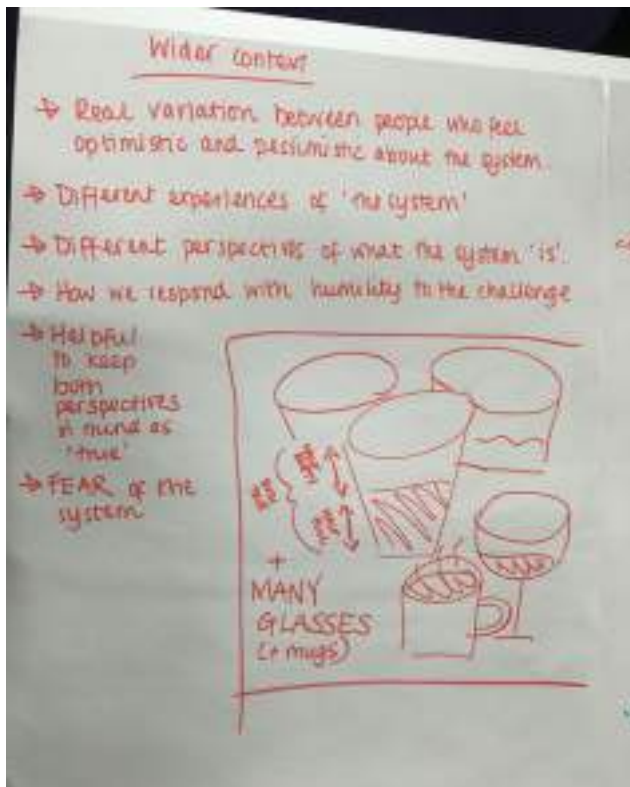 Wider context
→ Real variation between people who feel
optimistic and pessimistic about the system.
→ Different experiences of 'the system'
→ Different perspectives of what the system 'is'.
→ How we respond with humility to the challenge
→ Helpful
to keep
both
perspectives
in mind as
'true'
→ FEAR of the
system
+
MANY
GLASSES
(+ mugs)